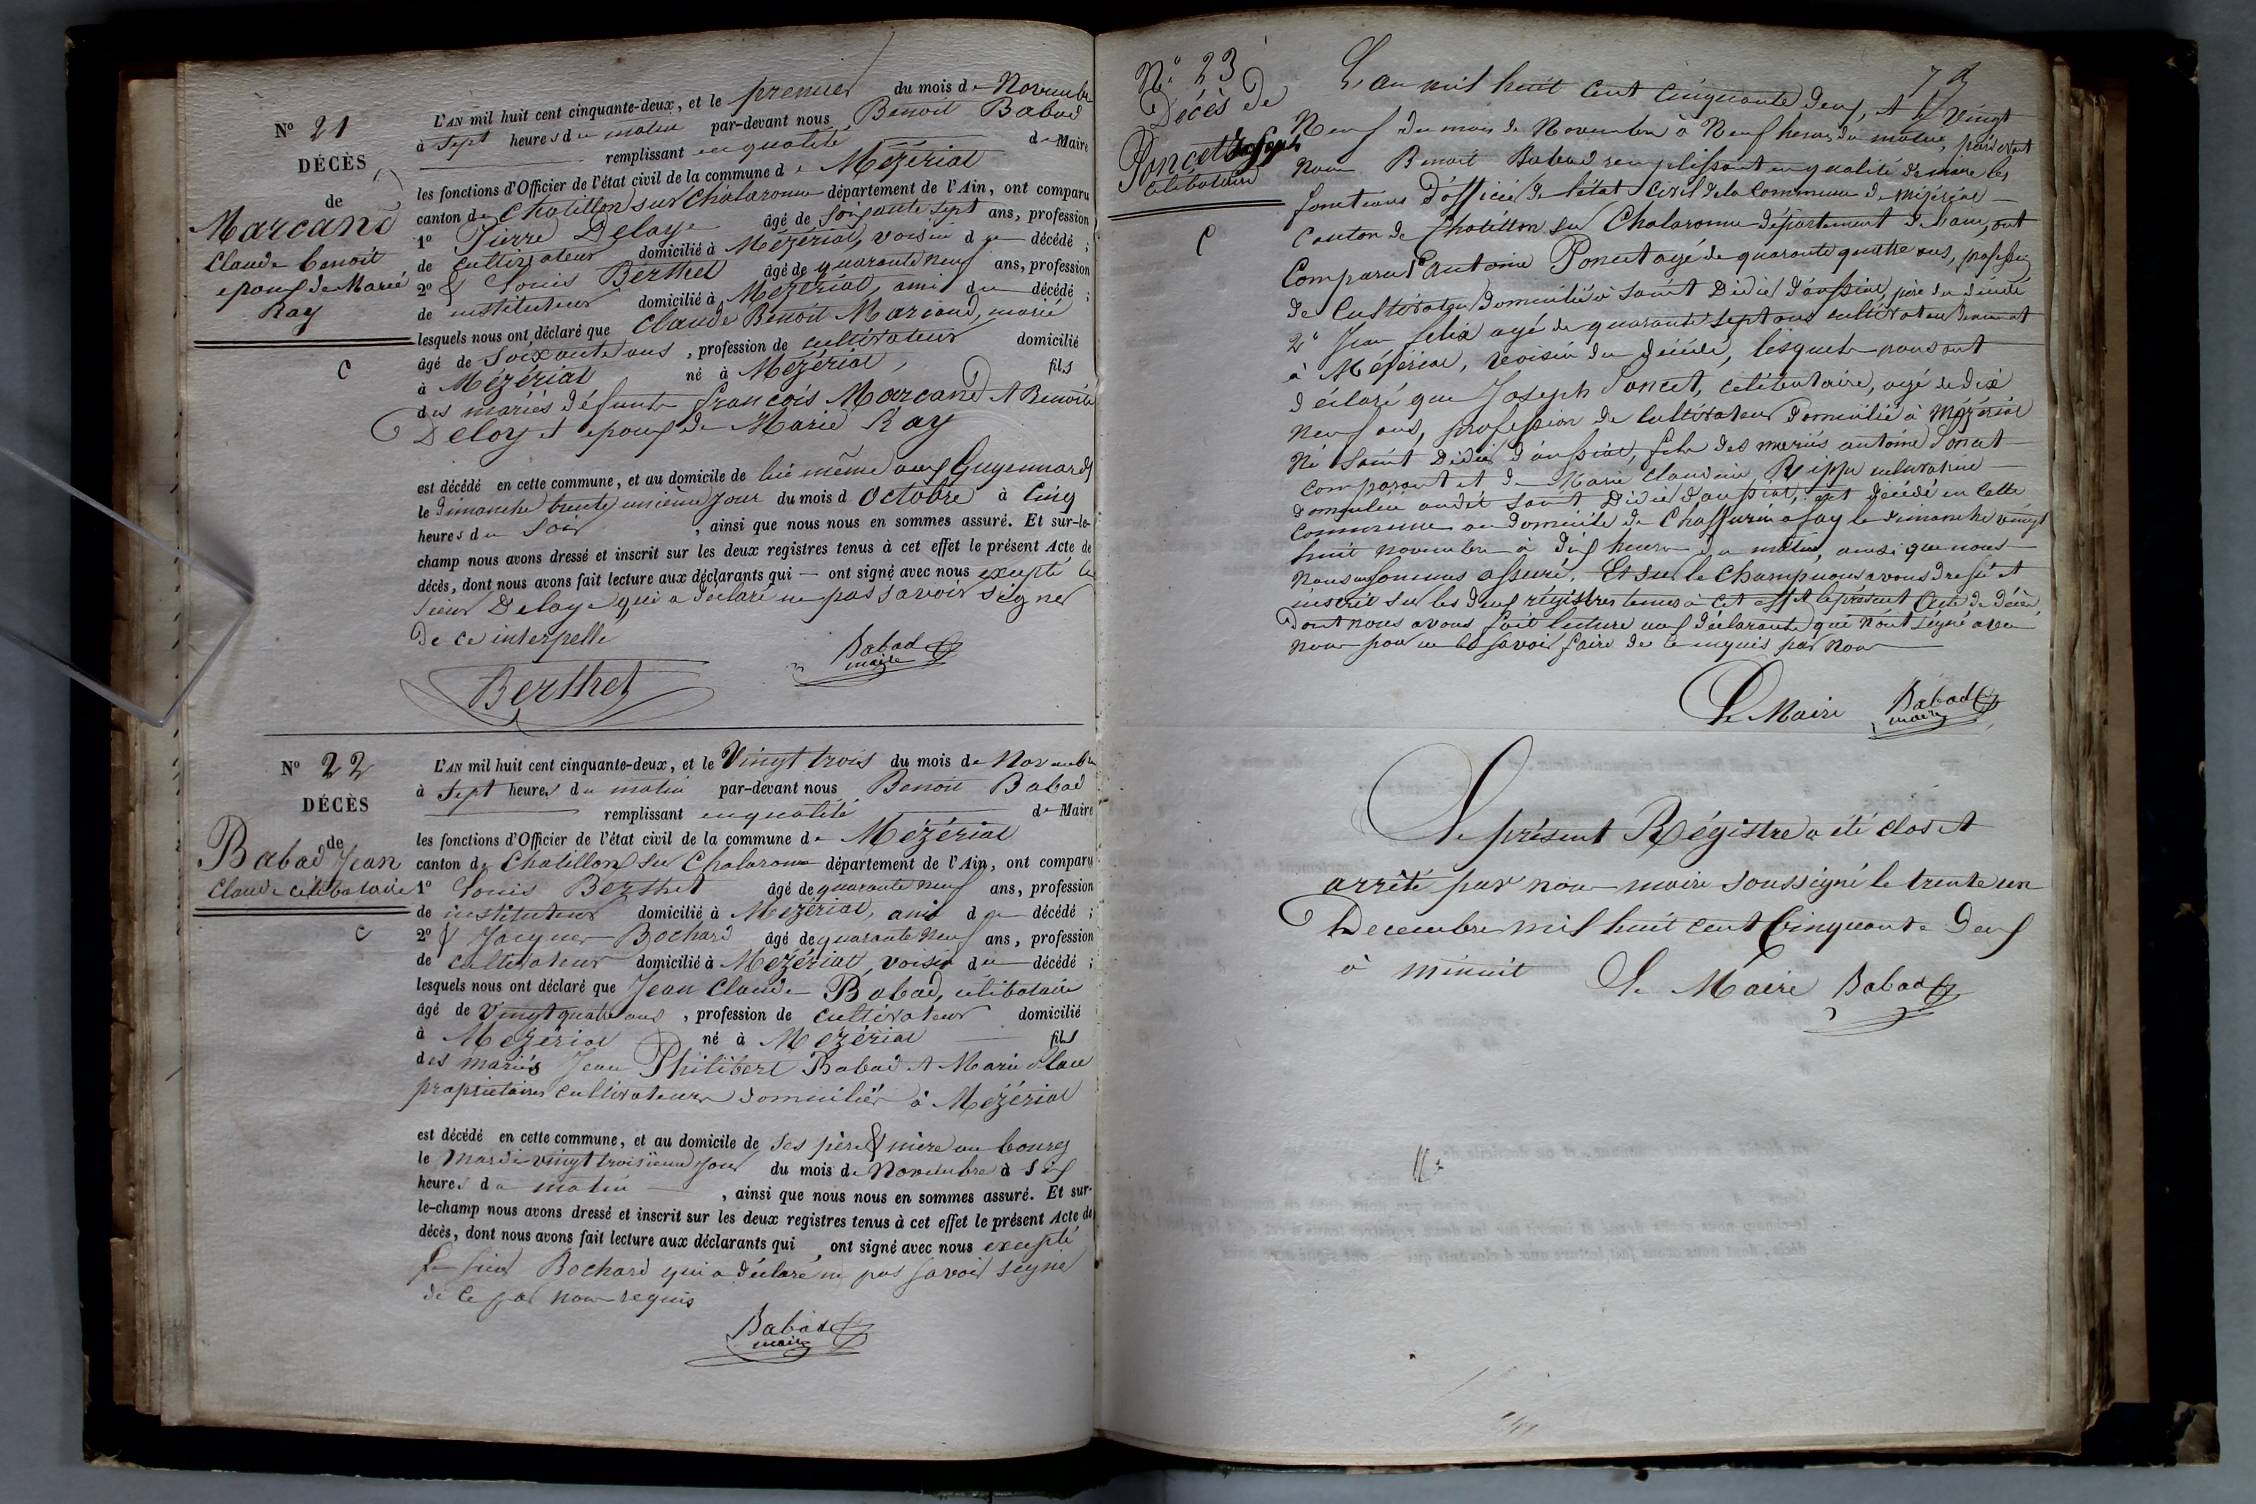 N° 21
DÉCÈS
de
Marcand
Claude Benoit
epoux de Marie
Ray
C
L'AN mil huit cent cinquante-deux, et le premier du mois de Novembre
à Sept heures du matin par-devant nous Benoit Babad
remplissant en qualité de Maire
les fonctions d'Officier de l'état civil de la commune de Mézériat
canton de Chatillon sur Chalaronne département de l'Ain, ont comparu
1° Pierre Delaye âgé de soixante sept ans, profession
de cultivateur domicilié à Mézériat, voisin du décédé ;
2° & Louis Berthet âgé de quarante neuf ans, profession
de instituteur domicilié à Mézériat, ami du décédé ;
lesquels nous ont déclaré que Claude Benoit Marcand, marié
âgé de soixante ans, profession de cultivateur domicilié
à Mézériat né à Mézériat, fils
des mariés défunts françois Marcand et Benoite
Deloy et epoux de Marie Ray
est décédé en cette commune, et au domicile de lui même aux Guyennards
le dimanche trente unième jour du mois d Octobre à Cinq
heures du Soir, ainsi que nous nous en sommes assuré. Et sur-le-
champ nous avons dressé et inscrit sur les deux registres tenus à cet effet le présent Acte de
décès, dont nous avons fait lecture aux déclarants qui — ont signé avec nous excepté le
sieur Delaye qui a déclaré ne pas savoir signer
de ce interpellé
Berthet
Babad
maire
N° 22
DÉCÈS
de
Babad Jean
Claude célibataire
C
L'AN mil huit cent cinquante-deux, et le Vingt trois du mois de Novembre
à Sept heures du matin par-devant nous Benoit Babad
remplissant en qualité de Maire
les fonctions d'Officier de l'état civil de la commune de Mézériat
canton de Chatillon sur Chalaronne département de l'Ain, ont comparu
1° Louis Berthet âgé de quarante neuf ans, profession
de instituteur domicilié à Mézériat, ami du décédé ;
2° & Jacques Bochard âgé de quarante neuf ans, profession
de cultivateur domicilié à Mézériat, voisin du décédé ;
lesquels nous ont déclaré que Jean Claude Babad, célibataire
âgé de Vingt quatre ans, profession de cultivateur domicilié
à Mézériat né à Mézériat fils
des mariés Jean Philibert Babad et Marie
propriétaires cultivateurs domiciliés à Mézériat
est décédé en cette commune, et au domicile de ses père & mère au bourg
le Mardi vingt troisième jour du mois de Novembre à six
heures du matin, ainsi que nous nous en sommes assuré. Et sur-
le-champ nous avons dressé et inscrit sur les deux registres tenus à cet effet le présent Acte de
décès, dont nous avons fait lecture aux déclarants qui, ont signé avec nous excepté
le sieur Bochard qui a déclaré ne pas savoir signé
de ce par nous requis
Babad
maire
N° 23
Décès de
Poncet Joseph
célibataire
C
L'an mil huit cent cinquante deux, et le Vingt
Neuf du mois de Novembre à Neuf heures du matin, par devant
nous Benoit Babad remplissant en qualité de maire les
fonctions d'officier de l'état civil de la commune de Mézériat
Canton de Chatillon sur Chalaronne département de l'ain, ont
Comparu 1° Antoine Poncet agé de quarante quatre ans, profession
de Cultivateur domicilié à Saint Didier d'aussiat, père du décédé
2° Jean felix agé de quarante sept ans cultivateur demeurant
à Mézériat, voisin du décédé, lesquels nous ont
déclaré que Joseph Poncet, célibataire, agé de dix
neuf ans, profession de cultivateur domicilié à Mézériat
Né Saint Didier d'aussiat, fils des mariés antoine Poncet
comparant et de Marie Claudine cultivatrice
domicilié audit Saint Didier d'aussiat, est décédé en cette
commune au domicile de le dimanche vingt
huit novembre à dix heures du matin, ainsi que nous
nous en sommes assuré. Et sur le champ nous avons dressé et
inscrit sur les deux régistres tenus à cet effet le présent Acte de décès,
dont nous avons fait lecture aux déclarants qui n'ont signé avec
nous pour ne le savoir faire de ce enquis par Nous
Le Maire Babad
maire
Le présent Régistre a été clos et
arrêté par nous maire soussigné le trente un
Decembre mil huit cent Cinquante deux
à minuit Le Maire Babad